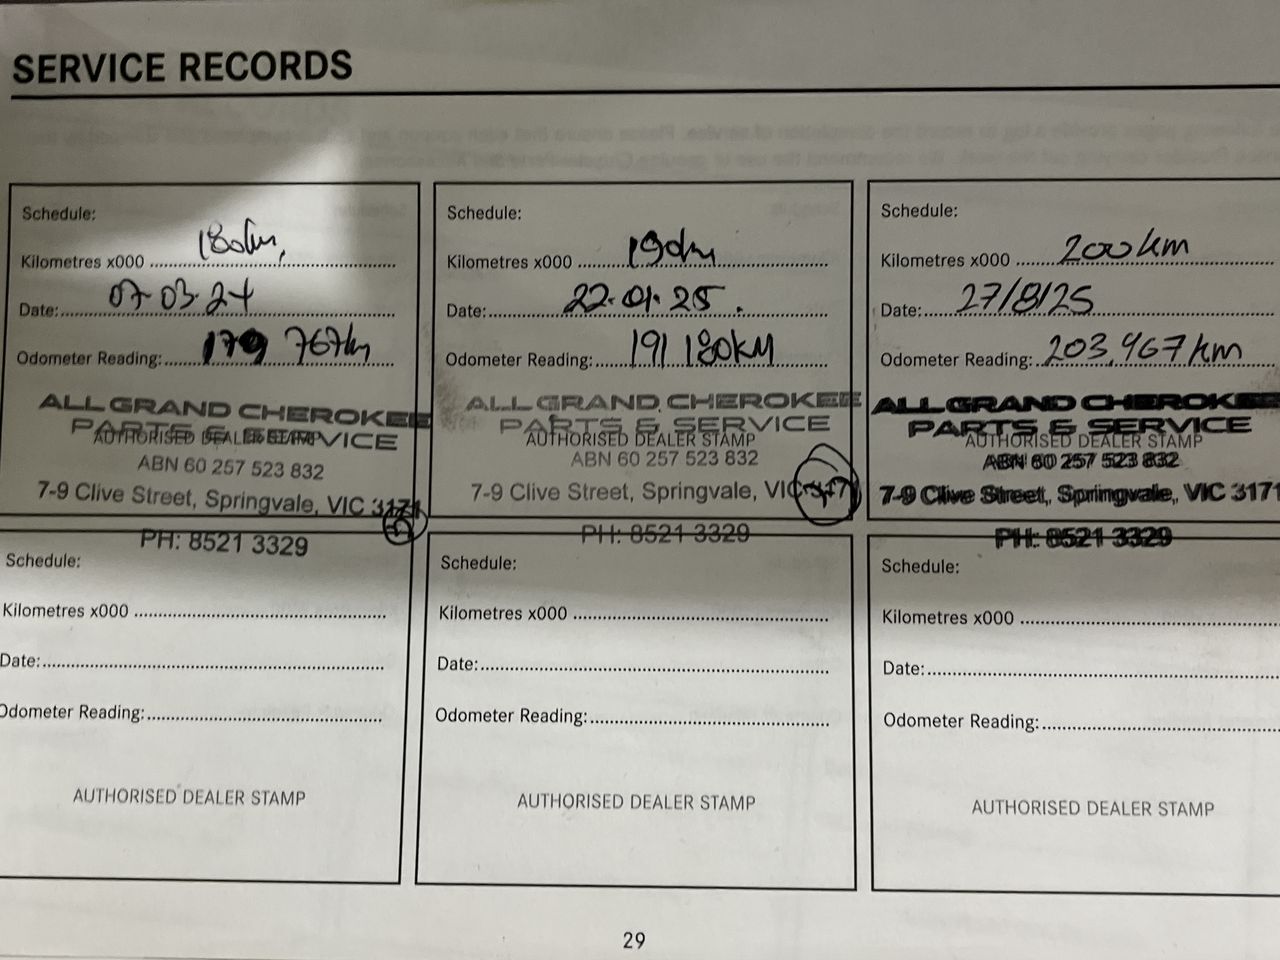 SERVICE RECORDS
Schedule:
Kilometres x000 180km,
Date: 07-03-24
Odometer Reading: 179 767km
ALL GRAND CHEROKEE
PARTS & SERVICE
AUTHORISED DEALER STAMP
ABN 60 257 523 832
7-9 Clive Street, Springvale, VIC 3171
PH: 8521 3329
Schedule:
Kilometres x000 190km
Date: 22.01.25.
Odometer Reading: 191 180KM
ALL GRAND CHEROKEE
PARTS & SERVICE
AUTHORISED DEALER STAMP
ABN 60 257 523 832
7-9 Clive Street, Springvale, VIC
PH: 8521 3329
Schedule:
Kilometres x000 200km
Date: 27/8/25
Odometer Reading: 203,967km
ALL GRAND CHEROKEE
PARTS & SERVICE
AUTHORISED DEALER STAMP
ABN 60 257 523 832
7-9 Clive Street, Springvale, VIC 3171
PH: 8521 3329
Schedule:
Kilometres x000
Date:
Odometer Reading:
AUTHORISED DEALER STAMP
Schedule:
Kilometres x000
Date:
Odometer Reading:
AUTHORISED DEALER STAMP
Schedule:
Kilometres x000
Date:
Odometer Reading:
AUTHORISED DEALER STAMP
29